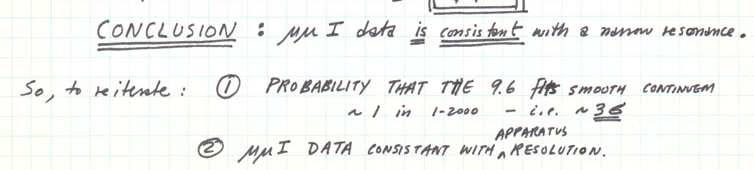 CONCLUSION : μμ I data is consistent with a narrow resonance.
So, to reiterate : ① PROBABILITY THAT THE 9.6 fits SMOOTH CONTINUEM
~ 1 in 1-2000 - i.e. ~ 3σ
APPARATUS
② μμ I DATA CONSISTANT WITH ^ RESOLUTION.